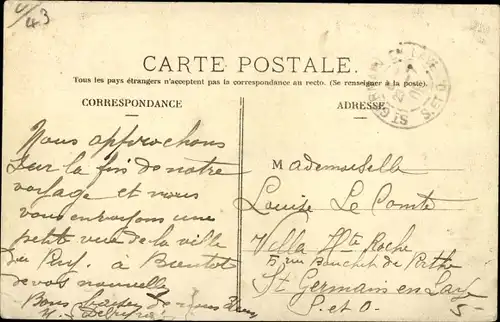 4/43
CARTE POSTALE.
Tous les pays étrangers n'acceptent pas la correspondance au recto. (Se renseigner à la poste).
CORRESPONDANCE
ADRESSE
ST GERMAIN EN LAYE
S. ET O.
Nous approchons
sur la fin de notre
voyage et nous
vous envoyons une
petite vue de la ville
du Puy. à Bientot
de vos nouvelles
Bons de nous
Mademoiselle
Louise Le Comte
Villa Hte Roche
5 rue
St Germain en Laye
S. et O. 5-